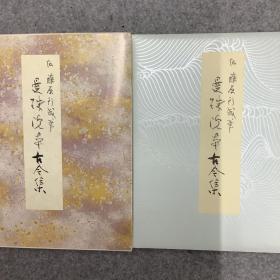 伝 藤原行成筆
曼殊院本古今集
伝 藤原行成筆
曼殊院本古今集